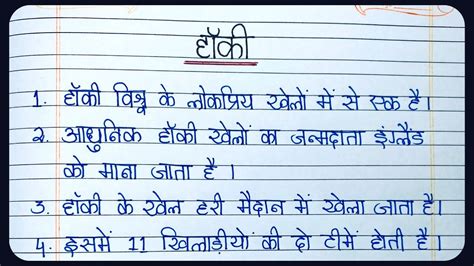 हॉकी
1. हॉकी विश्व के लोकप्रिय खेलों में से एक है।
2. आधुनिक हॉकी खेलों का जन्मदाता इंग्लैंड
को माना जाता है ।
3. हॉकी के खेल हरी मैदान में खेला जाता है।
4. इसमें 11 खिलाड़ीयों की दो टीमें होती है ।